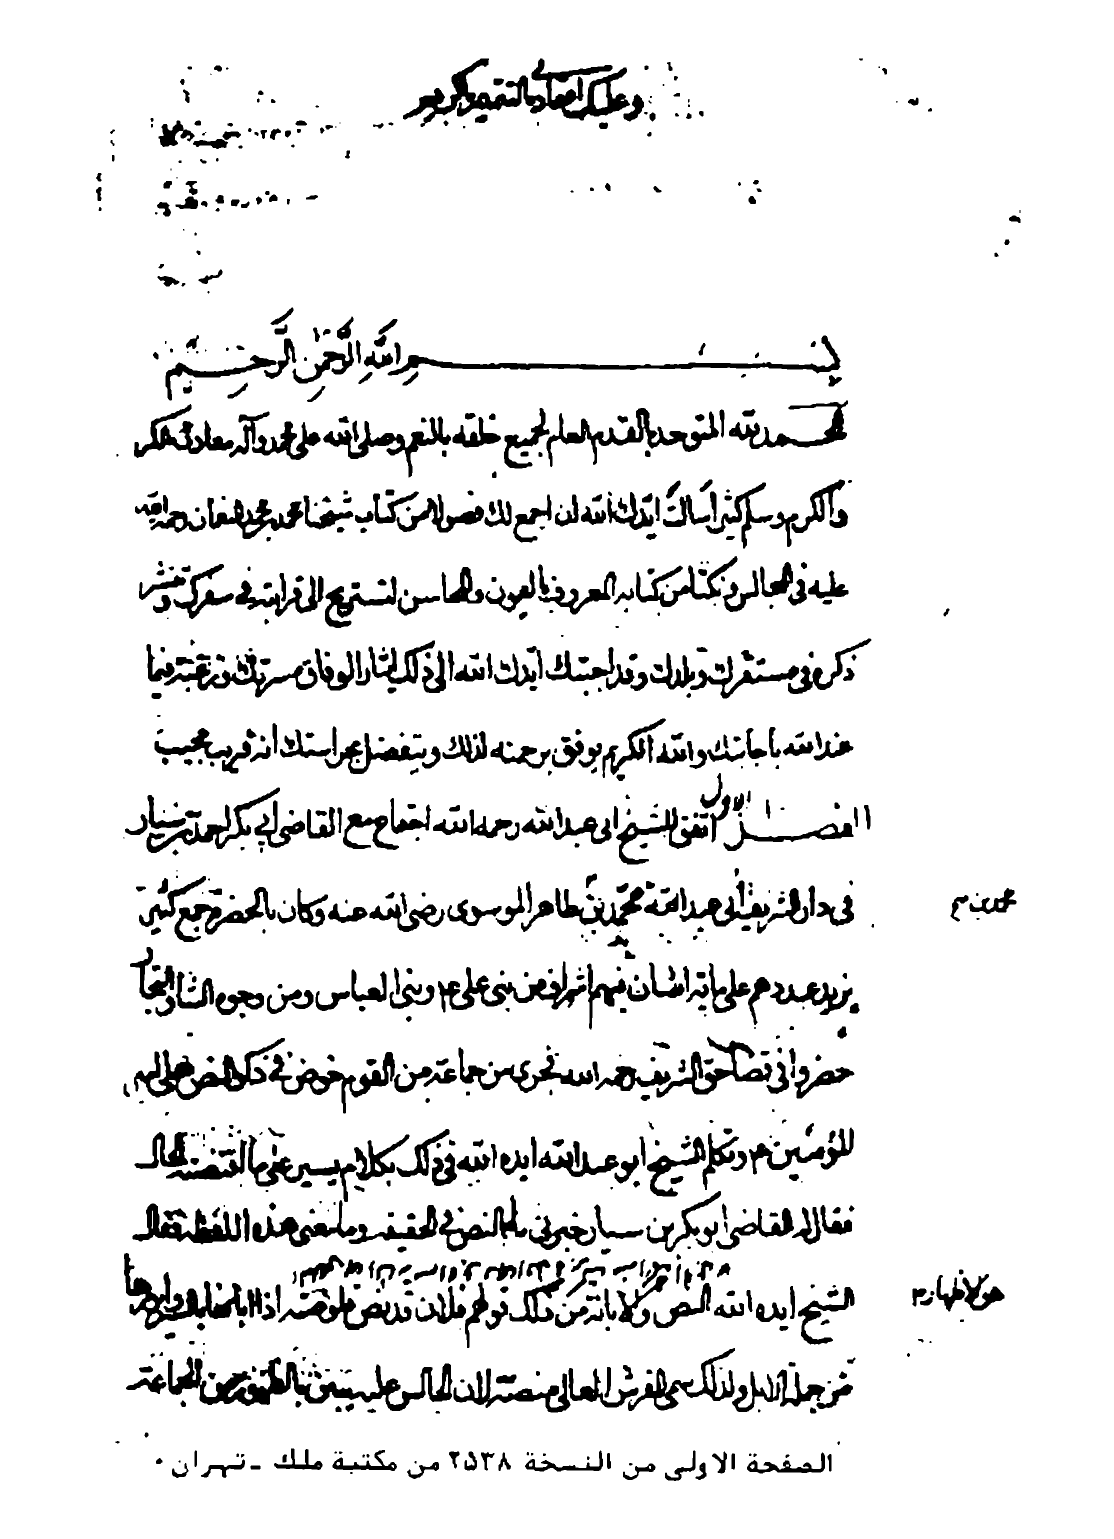 بســـــم الله الرحمن الرحيم
الحمد لله المتوحد بالقدم العام لجميع خلقه بالنعم وصلى الله على محمد وآله معادن
والكرم وسلم كثيرا سألت ايدك الله ان اجمع لك فصولا من كتاب شيخنا محمد بن محمد بن النعمان رحمة الله
عليه في المجالس ونكتا من كتابه المعروف بالعيون والمحاسن لتستريح الى قرائته في سفرك وتنشر
ذكره في مستقرك وبلدك وقد اجبتك ايدك الله الى ذلك ايثارا لوفاق مسرتك ورغبة فيما
عند الله باجابتك والله الكريم يوفق برحمته لذلك ويتفضل بحراستك انه قريب مجيب
الفصــل الاول اتفق للشيخ ابي عبد الله رحمه الله اجتماع مع القاضي ابي بكر احمد بن سيار
في دار الشريف أبي عبد الله محمد بن طاهر الموسوي رضي الله عنه وكان بالحضرة جمع كثير
محمد بن م
يزيد عددهم على مائة انسان فيهم اشراف من بني علي ع وبني العباس ومن وجوه الناس والتجار
حضروا في قضاء حق الشريف رحمه الله فجرى من جماعة من القوم خوض في ذكر النص على امير
المؤمنين ع وتكلم الشيخ ابو عبد الله ايده الله في ذلك بكلام يسير على ما اقتضته الحال
فقال له القاضي ابو بكر بن سيار خبرني ما النص في الحقيقة وما معنى هذه اللفظة فقال
الشيخ ايده الله النص هو الابانة من ذلك قولهم فلان قد نص قلوصه اذا ابانها بالسير وابرزها
هو الاظهار م
من جملة الابل ولذلك سمي الفرش العالي منصة لان الجالس عليه يبين بالظهور من الجماعة
الصفحة الاولى من النسخة ٢٥٣٨ من مكتبة ملك ـ تهران .